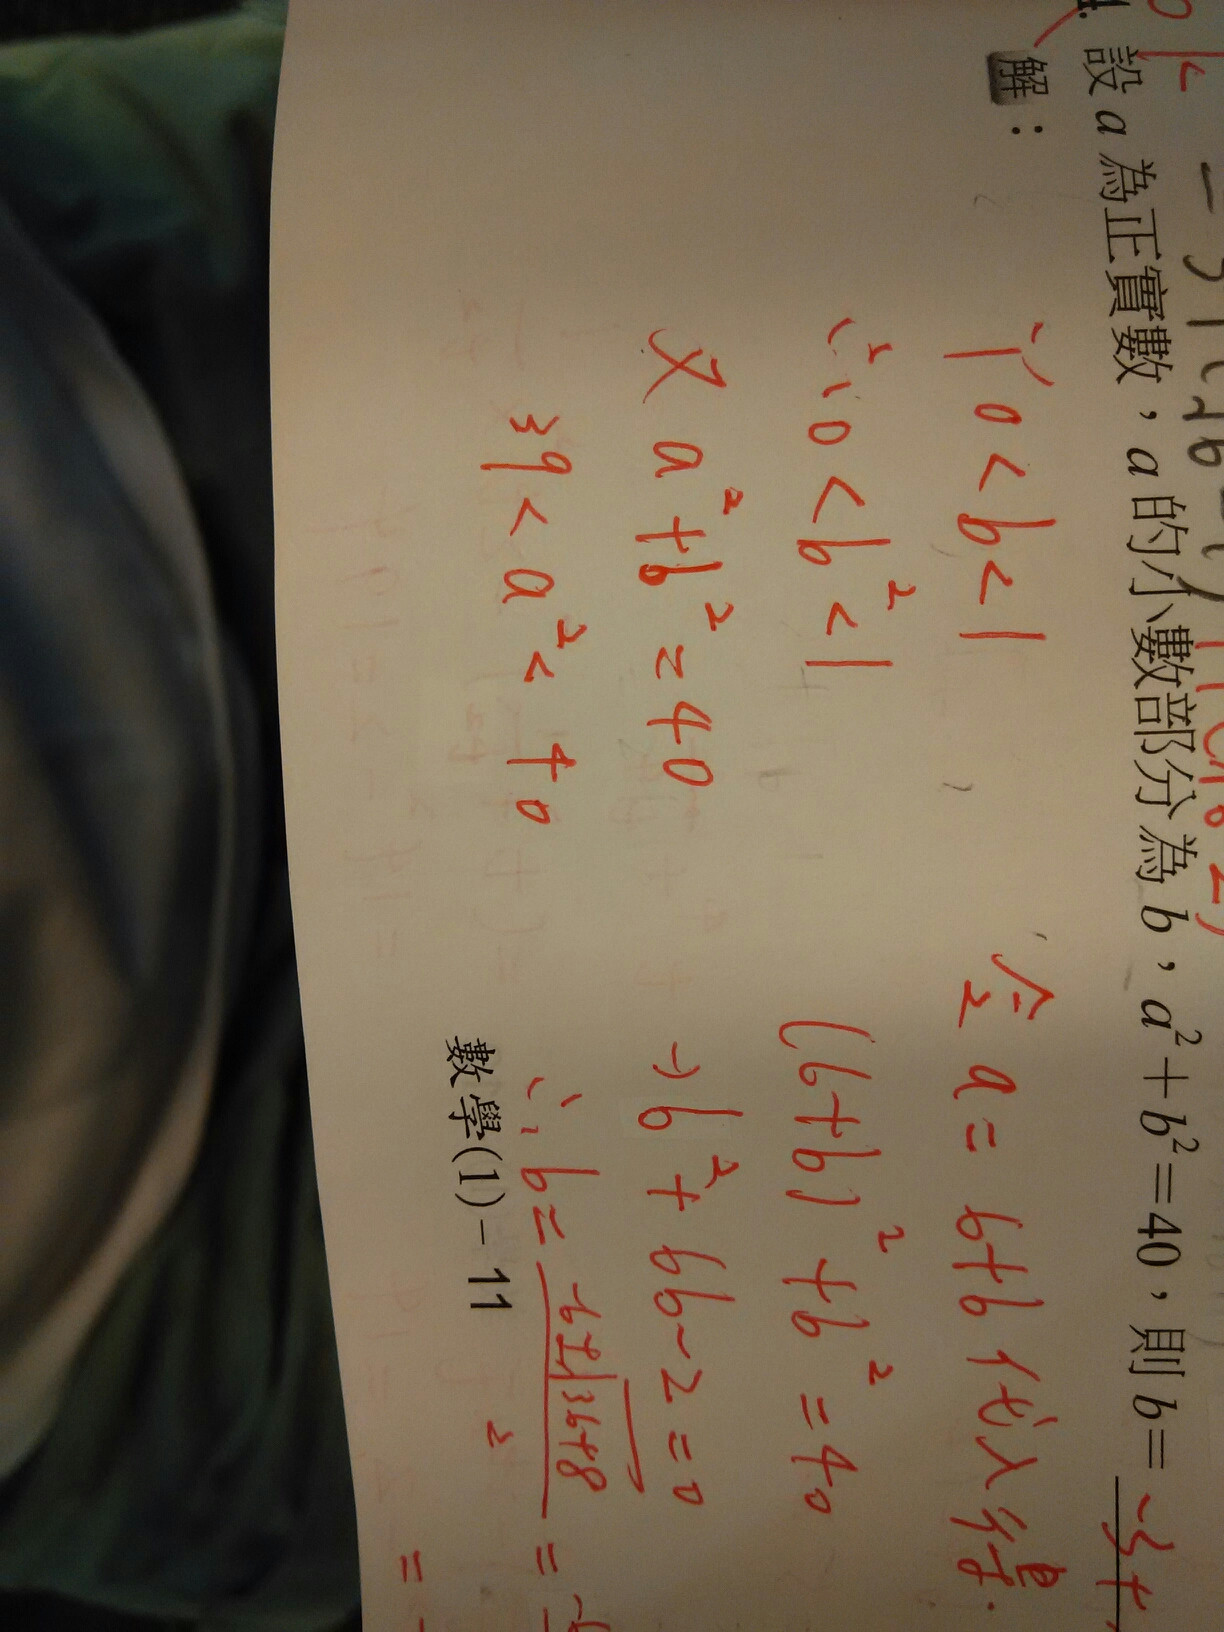 4. 設 a 為正實數，a 的小數部分為 b，a²+b²=40，則 b= -3+
解：
∵ 0<b<1
∴ 0<b²<1
又 a²+b²=40
39<a²<40
令 a=6+b 代入得
(6+b)²+b²=40
→ b²+6b-2=0
∴ b= (-6±√(36+8))/2 =
=
數學(1)-11